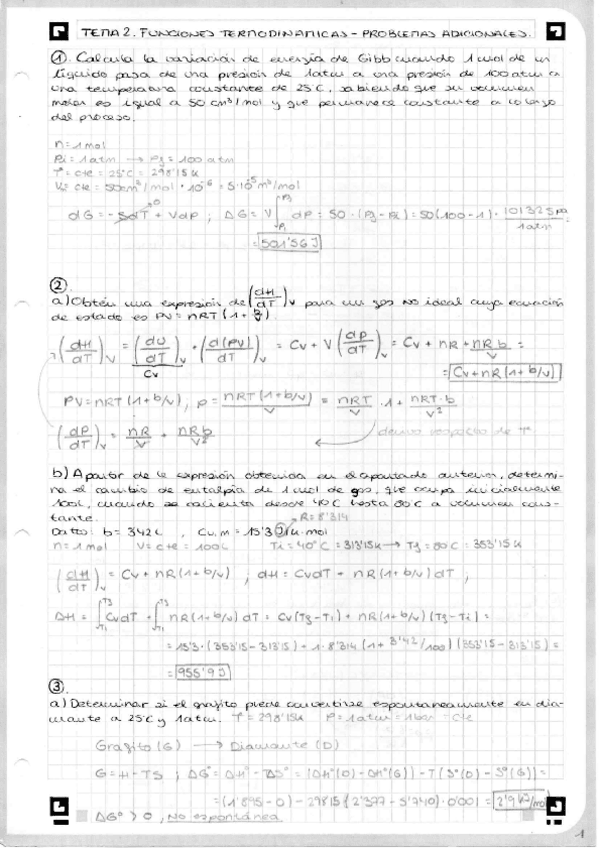 TEMA 2. FUNCIONES TERMODINAMICAS - PROBLEMAS ADICIONALES.
① Calcula la variación de energía de Gibb cuando 1 mol de un
líquido pasa de una presión de 1atm a una presión de 100atm a
una temperatura constante de 25°C, sabiendo que su volumen
molar es igual a 50 cm³/mol y que permanece constante a lo largo
del proceso.
n = 1 mol
Pi = 1 atm → Pf = 100 atm
T = cte = 25°C = 298'15 K
V = cte = 50cm³/mol · 10⁻⁶ = 5·10⁻⁵ m³/mol
dG = -SdT + VdP ; ΔG = V ∫ dP = 50 · (Pf - Pi) = 50 (100 - 1) · 101325 Pa / 1 atm =
= 501'56 J
②
a) Obtén una expresión de (dH/dT)v para un gas no ideal cuya ecuación
de estado es PV = nRT (1 + b/v)
(dH/dT)v = (dU/dT)v + (d(PV)/dT)v = Cv + V (dP/dT)v = Cv + nR + nRb/v =
Cv
= Cv + nR (1 + b/v)
PV = nRT (1 + b/v), p = nRT (1 + b/v) / v = nRT/v · 1 + nRT·b/v²
(dP/dT)v = nR/v + nRb/v²
respecto de T.
b) A partir de la expresión obtenida en el apartado anterior, determi-
na el cambio de entalpía de 1 mol de gas, que ocupa inicialmente
100L, cuando se calienta desde 40°C hasta 80°C a volumen cons-
tante.
R = 8'314
Datos: b = 3'42 L, Cv,m = 15'3 J/K·mol
n = 1 mol V = cte = 100L Ti = 40°C = 313'15K → Tf = 80°C = 353'15 K
(dH/dT)v = Cv + nR (1 + b/v) , dH = CvdT + nR (1 + b/v) dT ,
ΔH = ∫ CvdT + ∫ nR (1 + b/v) dT = Cv (Tf - Ti) + nR (1 + b/v) (Tf - Ti) =
= 15'3 · (353'15 - 313'15) + 1 · 8'314 (1 + 3'42/100) (353'15 - 313'15) =
= 955'9 J
③
a) Determinar si el grafito puede convertirse espontaneamente en dia-
mante a 25°C y 1atm. T = 298'15K P = 1atm = 1bar = cte
Grafito (G) → Diamante (D)
G = H - TS ; ΔG° = ΔH° - TΔS° = (ΔH°(D) - ΔH°(G)) - T (S°(D) - S°(G)) =
= (1'895 - 0) - 298'15 (2'377 - 5'740) · 0'001 = 2'9 KJ/mol
ΔG° > 0, No espontánea
1